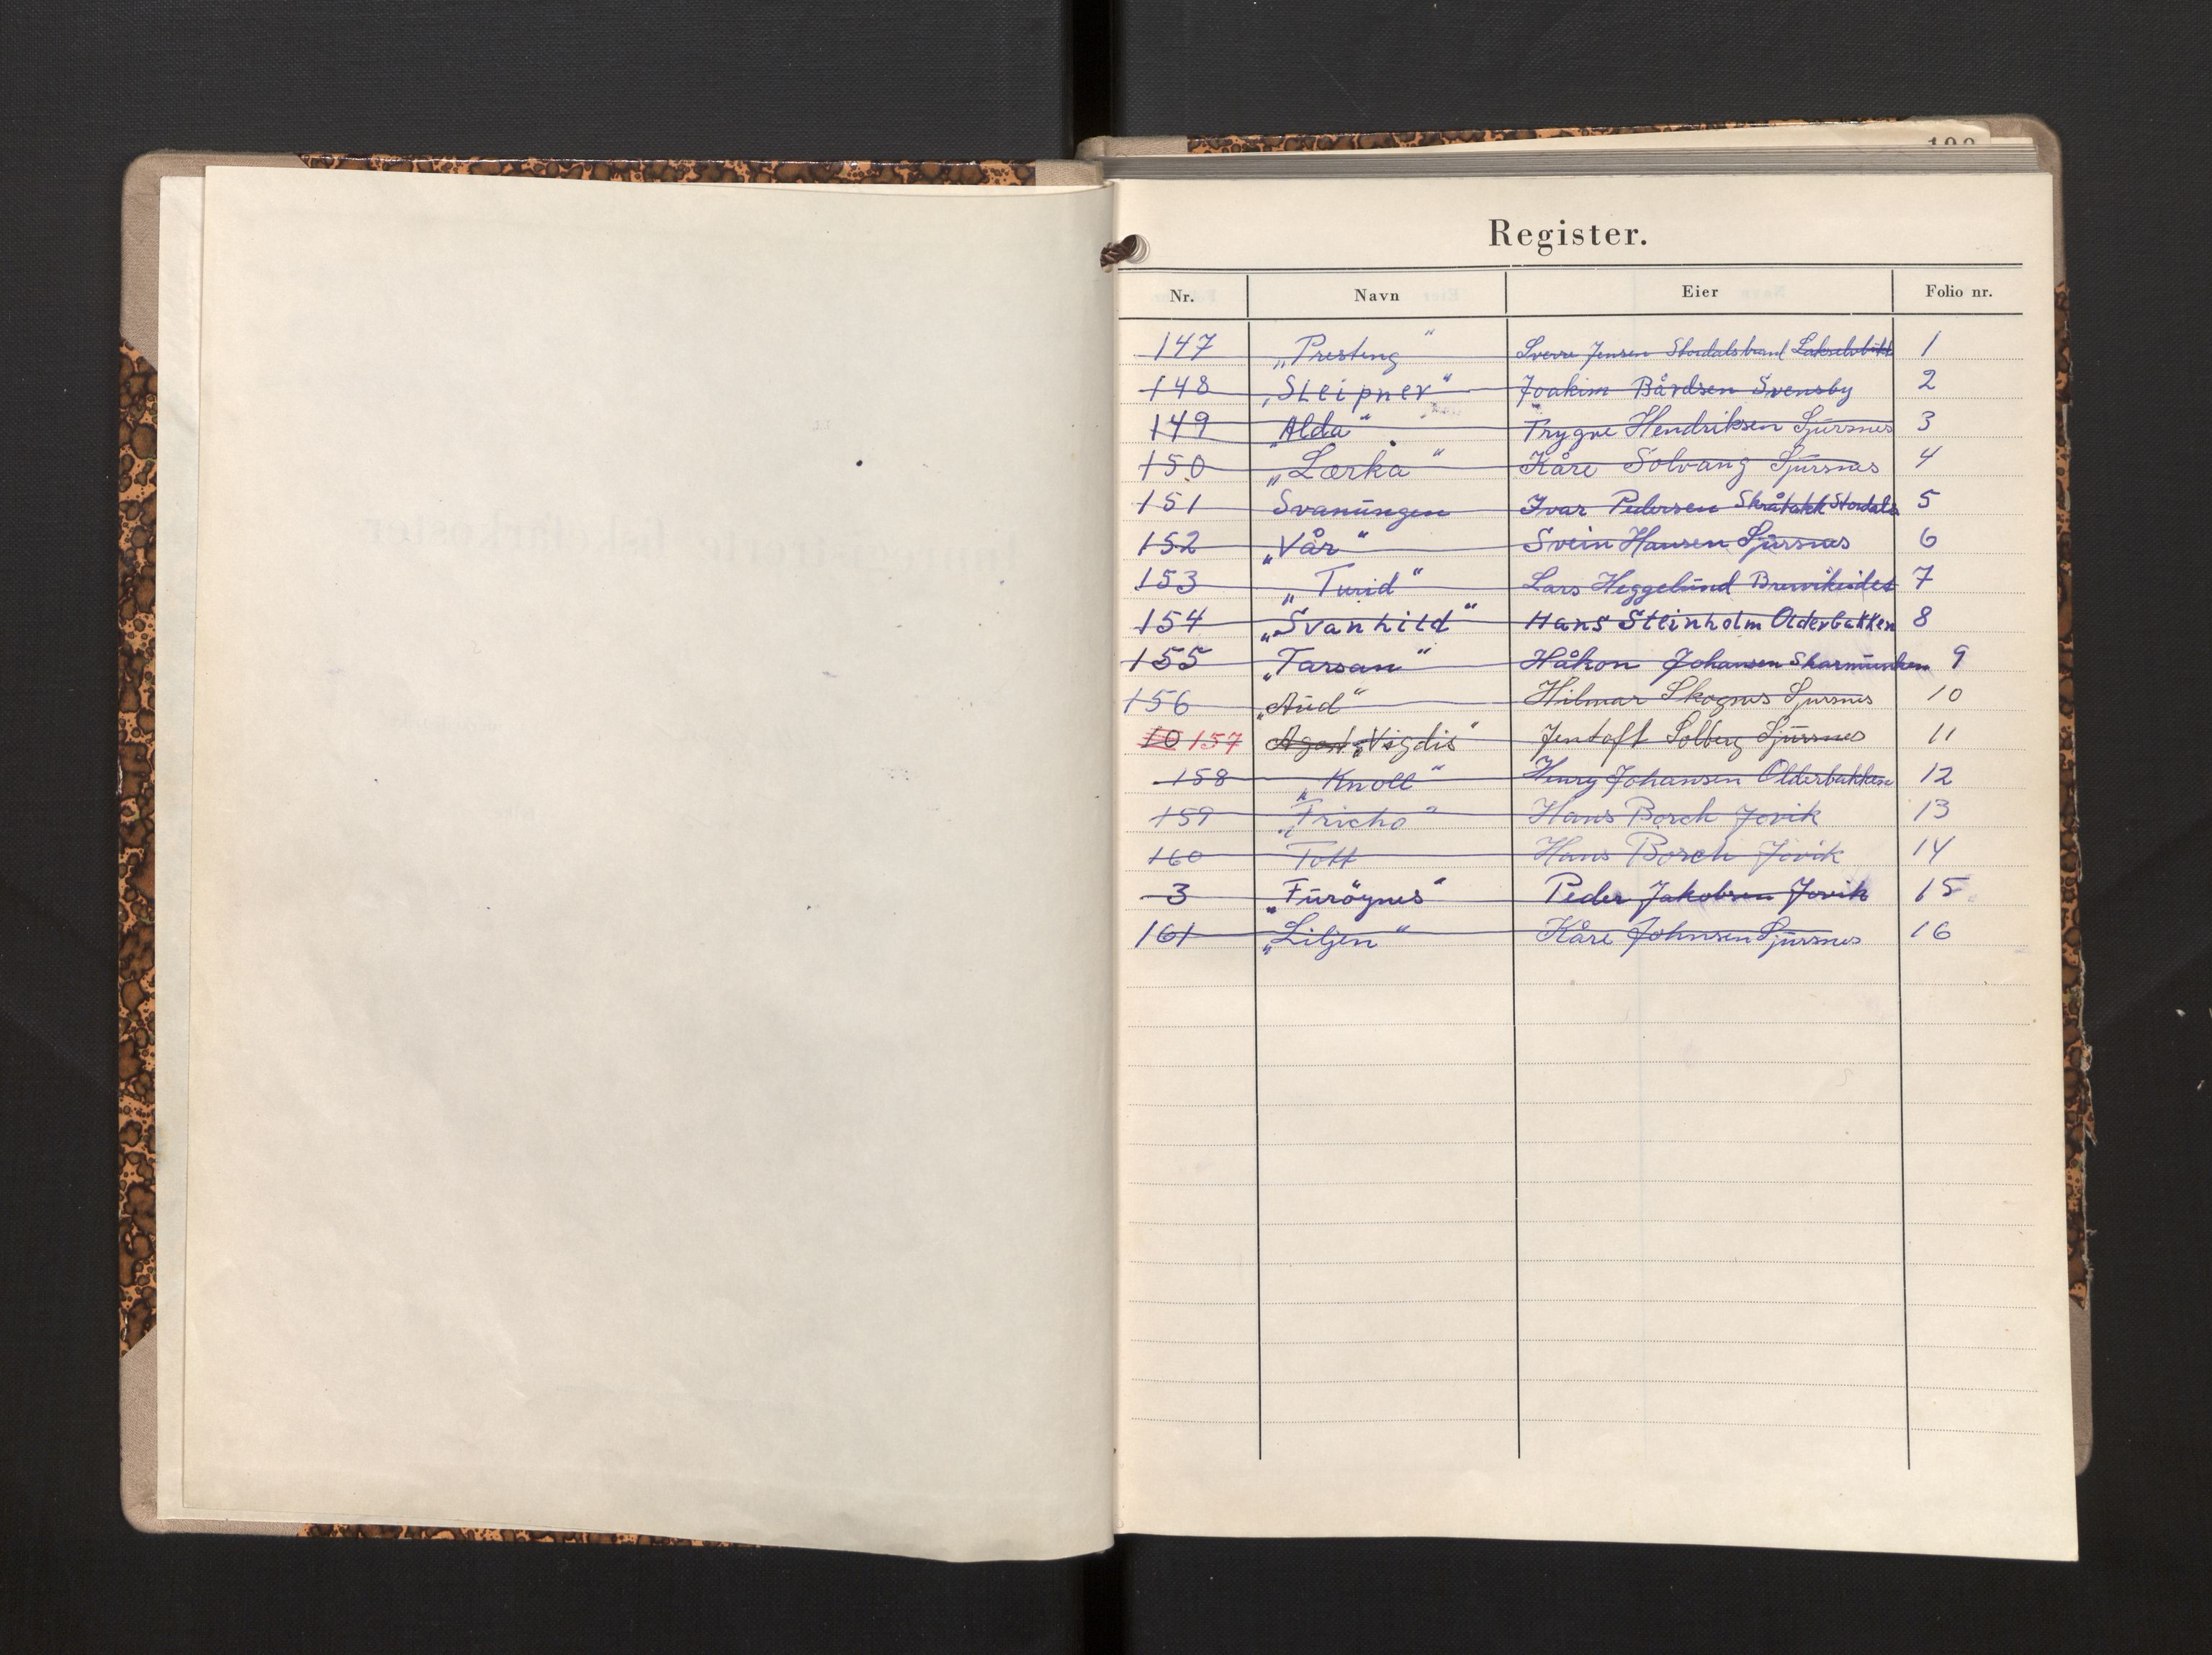 Register.
Nr. Navn Eier Folio nr.
147 „Presteng“ Sverre Jensen Stordalstrand Lakselvbukt 1
148 „Sleipner“ Joakim Bårdsen Svensby 2
149 „Alda“ Trygve Hendriksen Sjursnes 3
150 „Lærka“ Kåre Solvang Sjursnes 4
151 Svanungen Ivar Pedersen 5
152 „Vår“ Svein Hansen Sjursnes 6
153 „Turid“ Lars Heggelund Breivikeidet 7
154 „Svanhild“ Hans Steinholm Olderbakken 8
155 „Tarsan“ Håkon Johansen Skarmunken 9
156 „Aud“ Hilmar Skognes Sjursnes 10
10 157 Agost „Vigdis“ Jentoft Solberg Sjursnes 11
158 „Knoll“ Henry Johansen Olderbakken 12
159 „Tricho“ Hans Borch Jøvik 13
160 Tott Hans Borch Jøvik 14
3 „Furöynes“ Peder Jakobsen Jøvik 15
161 „Liljen“ Kåre Johnsen Sjursnes 16